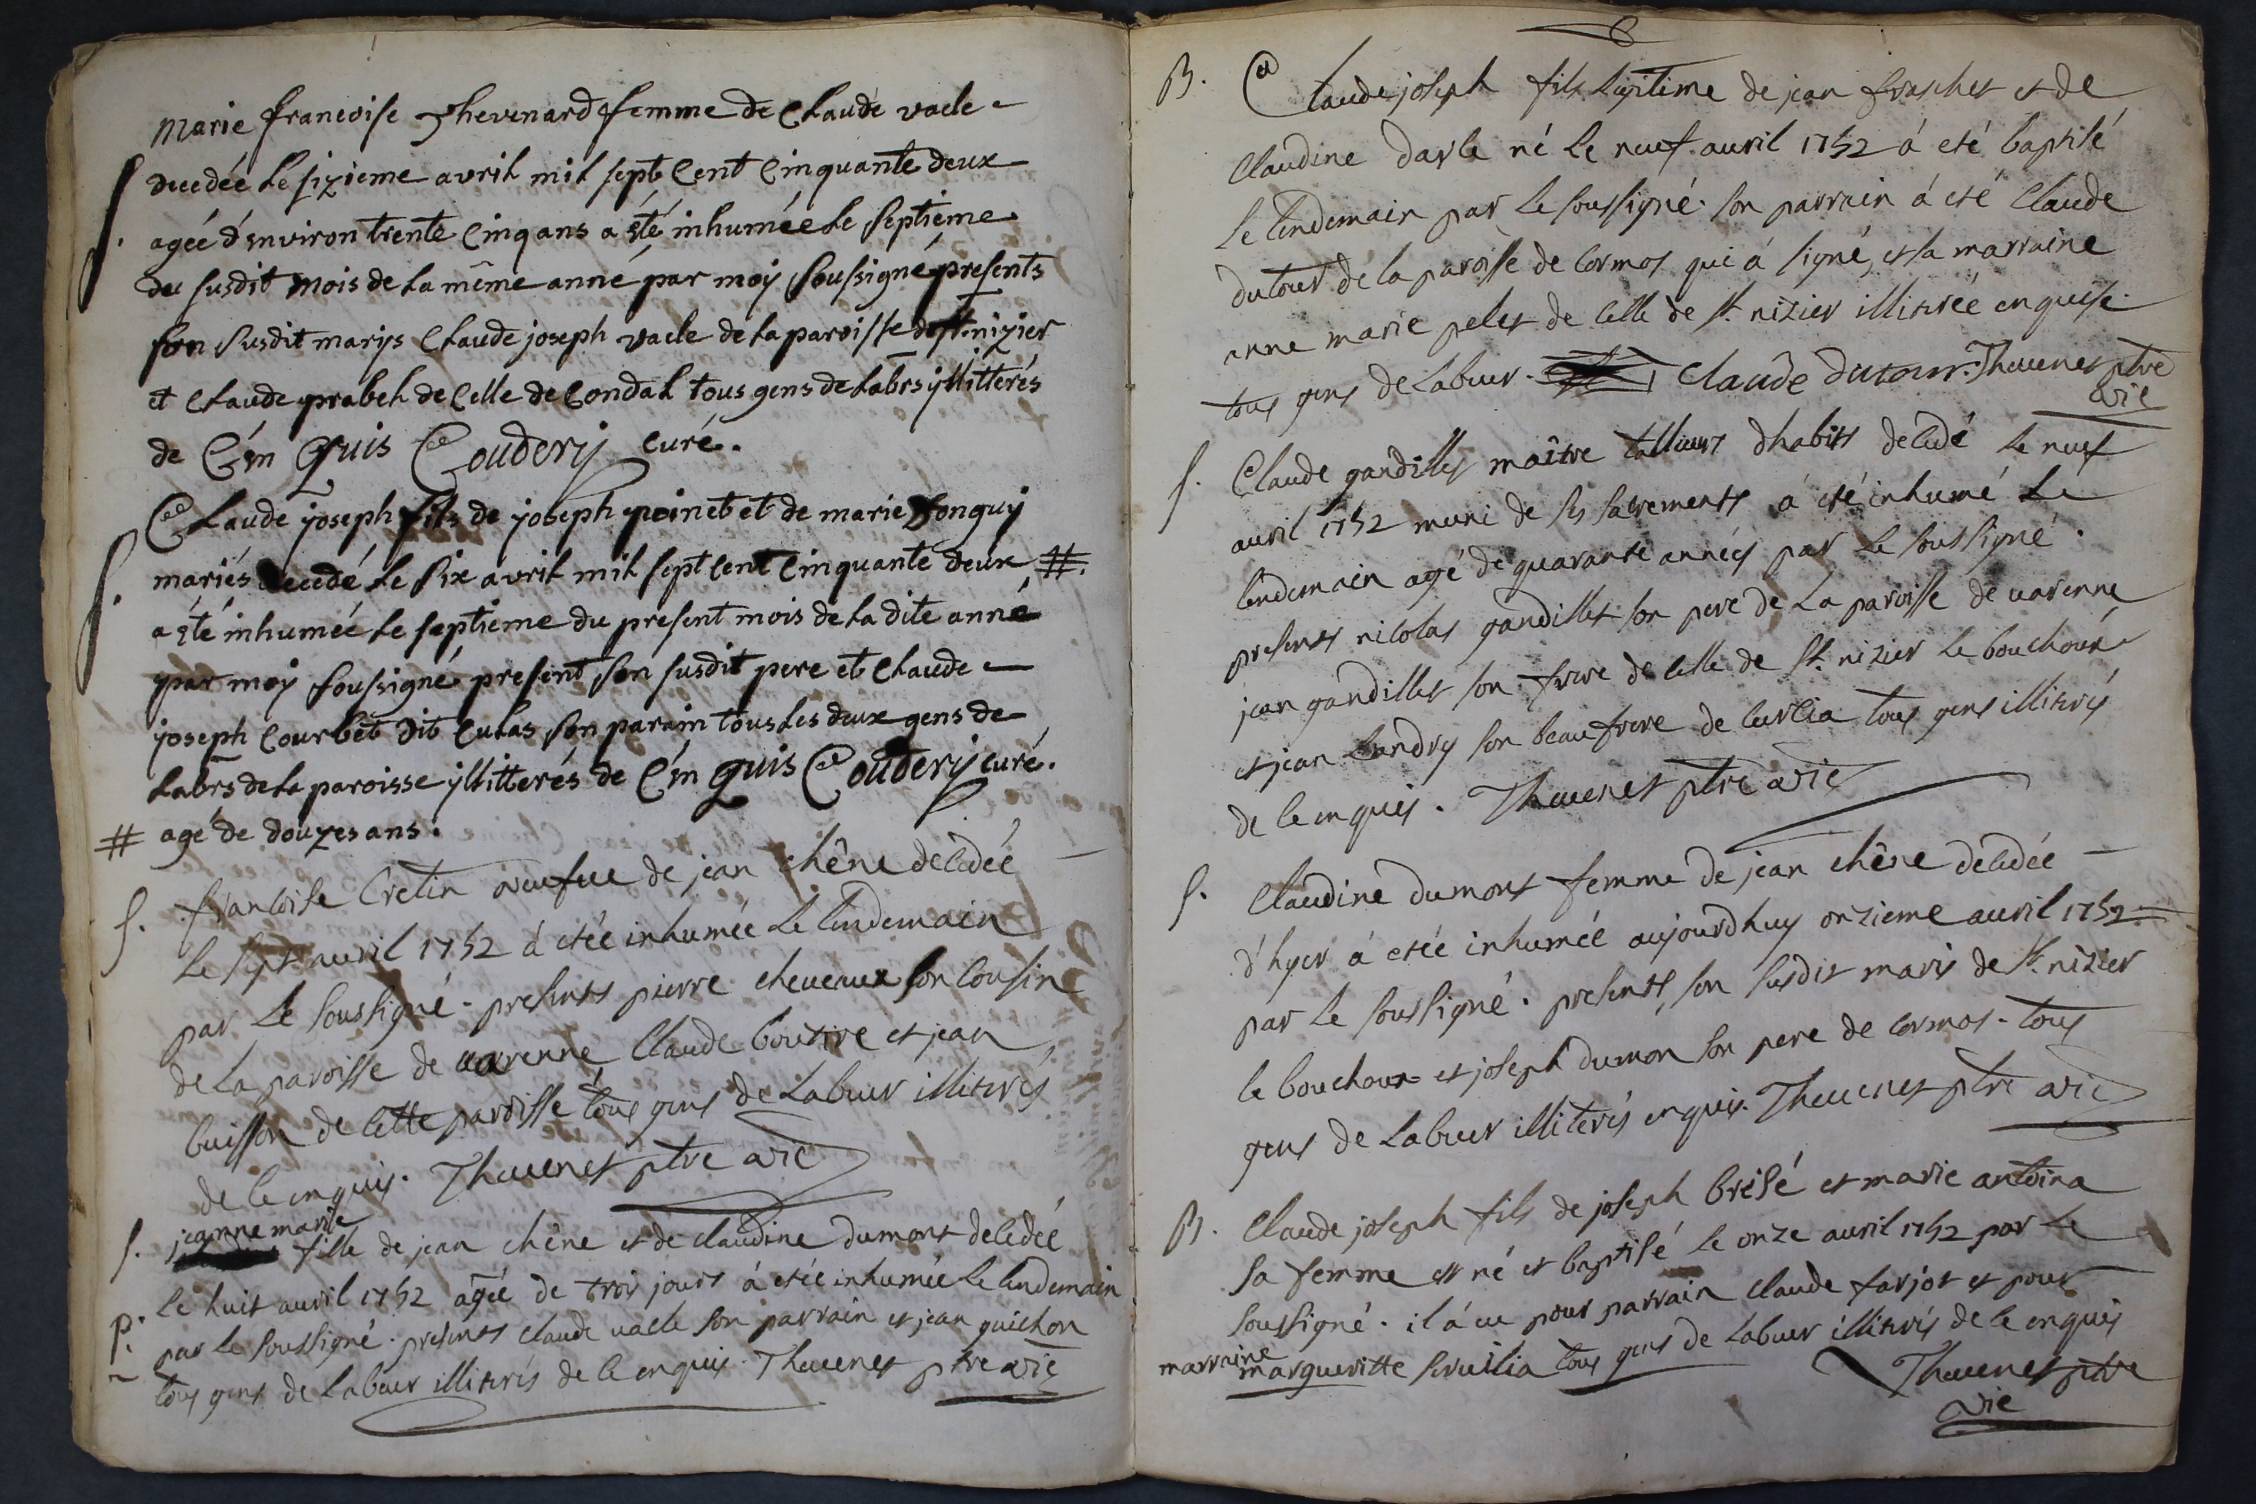 Marie francoise Thevenard femme de Claude vacle
S. decedée le sizieme avril mil sept Cent Cinquante deux
agéé d'environ trente Cinq ans a été inhumée le septieme
du susdit mois de la même anné par moy soussigné presents
son susdit marys Claude joseph vacle de la paroisse de st. nizier
et Claude prabel de Celle de Condal tous gens de labrs yllitterés
de Cén quis Couderij curé.
S. Claude yoseph fils de yoseph poinet et de marie Tonguy
mariés decedé le six avril mil sept cent Cinquante deux #.
a été inhumée le septieme du present mois de la dite anné
par moy soussigné present son susdit pere et Claude
yoseph Courbet dit Culas son parain tous les deux gens de
labrs de la paroisse yllitterés de Cén quis Couderij curé.
# agé de douzes ans.
S. francoise Cretin veufue de jean chêne decedée
le sept auril 1752 á etée inhumée le lendemain
par le soussigné. presents pierre cheueaux son cousin
de la paroisse de varenne, Claude boutire et jean
buisson de cette paroisse, tous gens de labeur illiterés
de ce enquis. Theuenet ptre vic
S. jeanne marie
fille de jean chêne et de claudine dumont decedée
P. le huit auril 1752 âgée de trois jours á etée inhumée le lendemain
par le soussigné. presents claude uacle son parrain et jean guichon
tous gens de labeur illiterés de ce enquis. Theuenet ptre vic
B. Claude joseph fils legitime de jean fraschet et de
Claudine darle né le neuf auril 1752 á eté baptisé
le lendemain par le soussigné. son parrain á eté Claude
dutour de la paroisse de Cormos qui á signé, et sa marraine
anne marie pelet de celle de st. nizier illiterée enquise.
tous gens de labeur. Claude dutour. Theuenet ptre
vic
S. Claude gandillet maître tallieurs dhabits decedé le neuf
auril 1752 muni de ses sacrements á eté inhumé le
lendemain agé de quarante années par le soussigné.
presents nicolas gandillet son pere de la paroisse de uarenne
jean gandillet son frere de celle de st. nizier le bouchoux
et jean landry son beaufrere de curcia tous gens illiterés
de ce enquis. Theuenet ptre vic
S. Claudine dumont femme de jean chêne decedée
d'hyer á etée inhumée aujourdhuy onzieme auril 1752
par le soussigné. presents son susdit maris de st. nizier
le bouchoux et joseph dumon son pere de cormos. tous
gens de labeur illiterés enquis. Theuenet ptre vic
B. Claude joseph fils de joseph brésé et marie antoina
sa femme est né et baptisé le onze auril 1752 par le
soussigné. il á eu pour parrain claude farjot et pour
marraine margueritte servilia tous gens de labeur illiterés de ce enquis
Theuenet ptre
vic